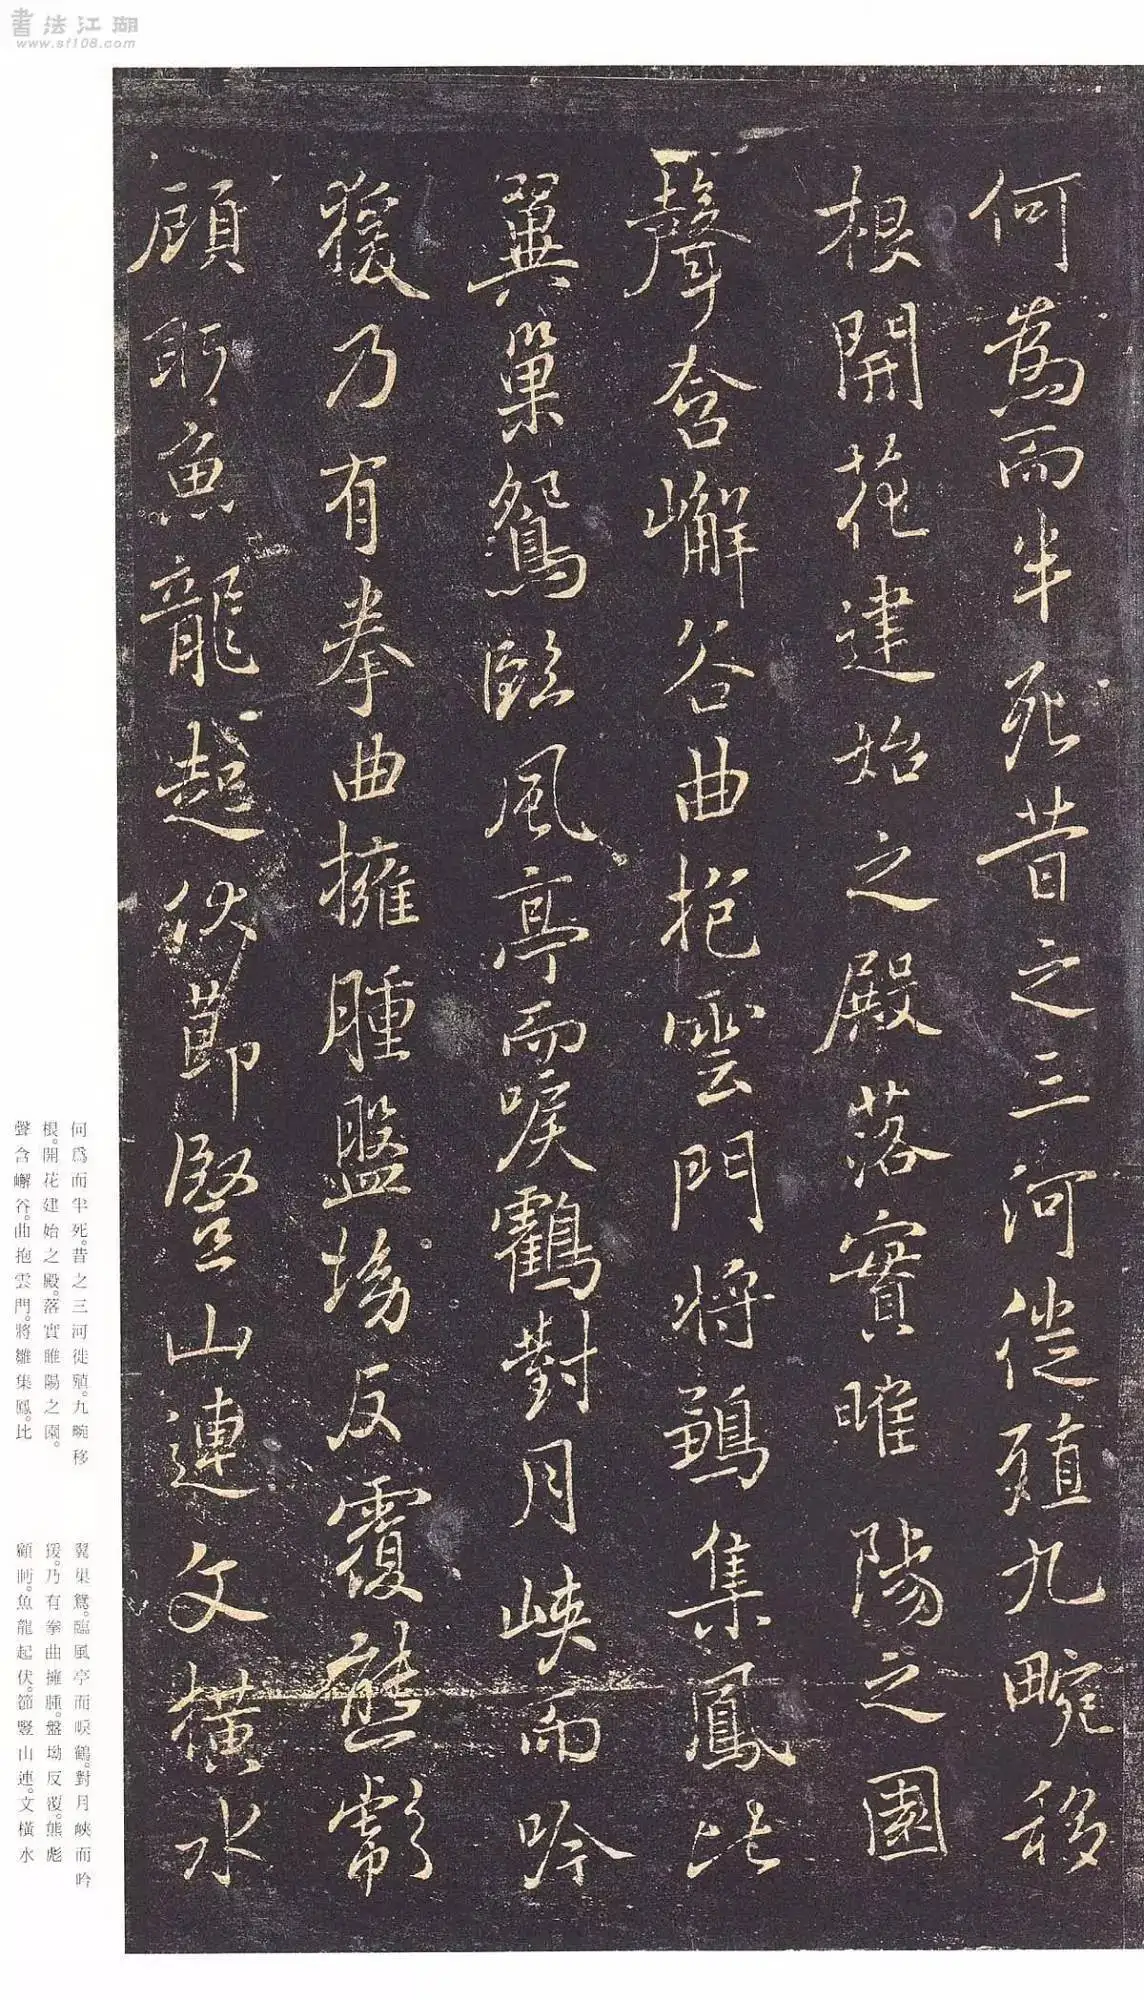 書法江湖
www.sf108.com
何為而半死昔之三河徙殖九畹移
根開花建始之殿落實睢陽之園
聲含嶰谷曲抱雲門將鶵集鳳比
翼巢鴛臨風亭而唳鶴對月峽而吟
猨乃有拳曲擁腫盤坳反覆熊彪
顧眄魚龍起伏節豎山連文橫水
何為而半死。昔之三河徙殖。九畹移
根。開花建始之殿。落實睢陽之園。
聲含嶰谷。曲抱雲門。將雛集鳳。比
翼巢鴛。臨風亭而唳鶴。對月峽而吟
猨。乃有拳曲擁腫。盤坳反覆。熊彪
顧眄。魚龍起伏。節豎山連。文橫水